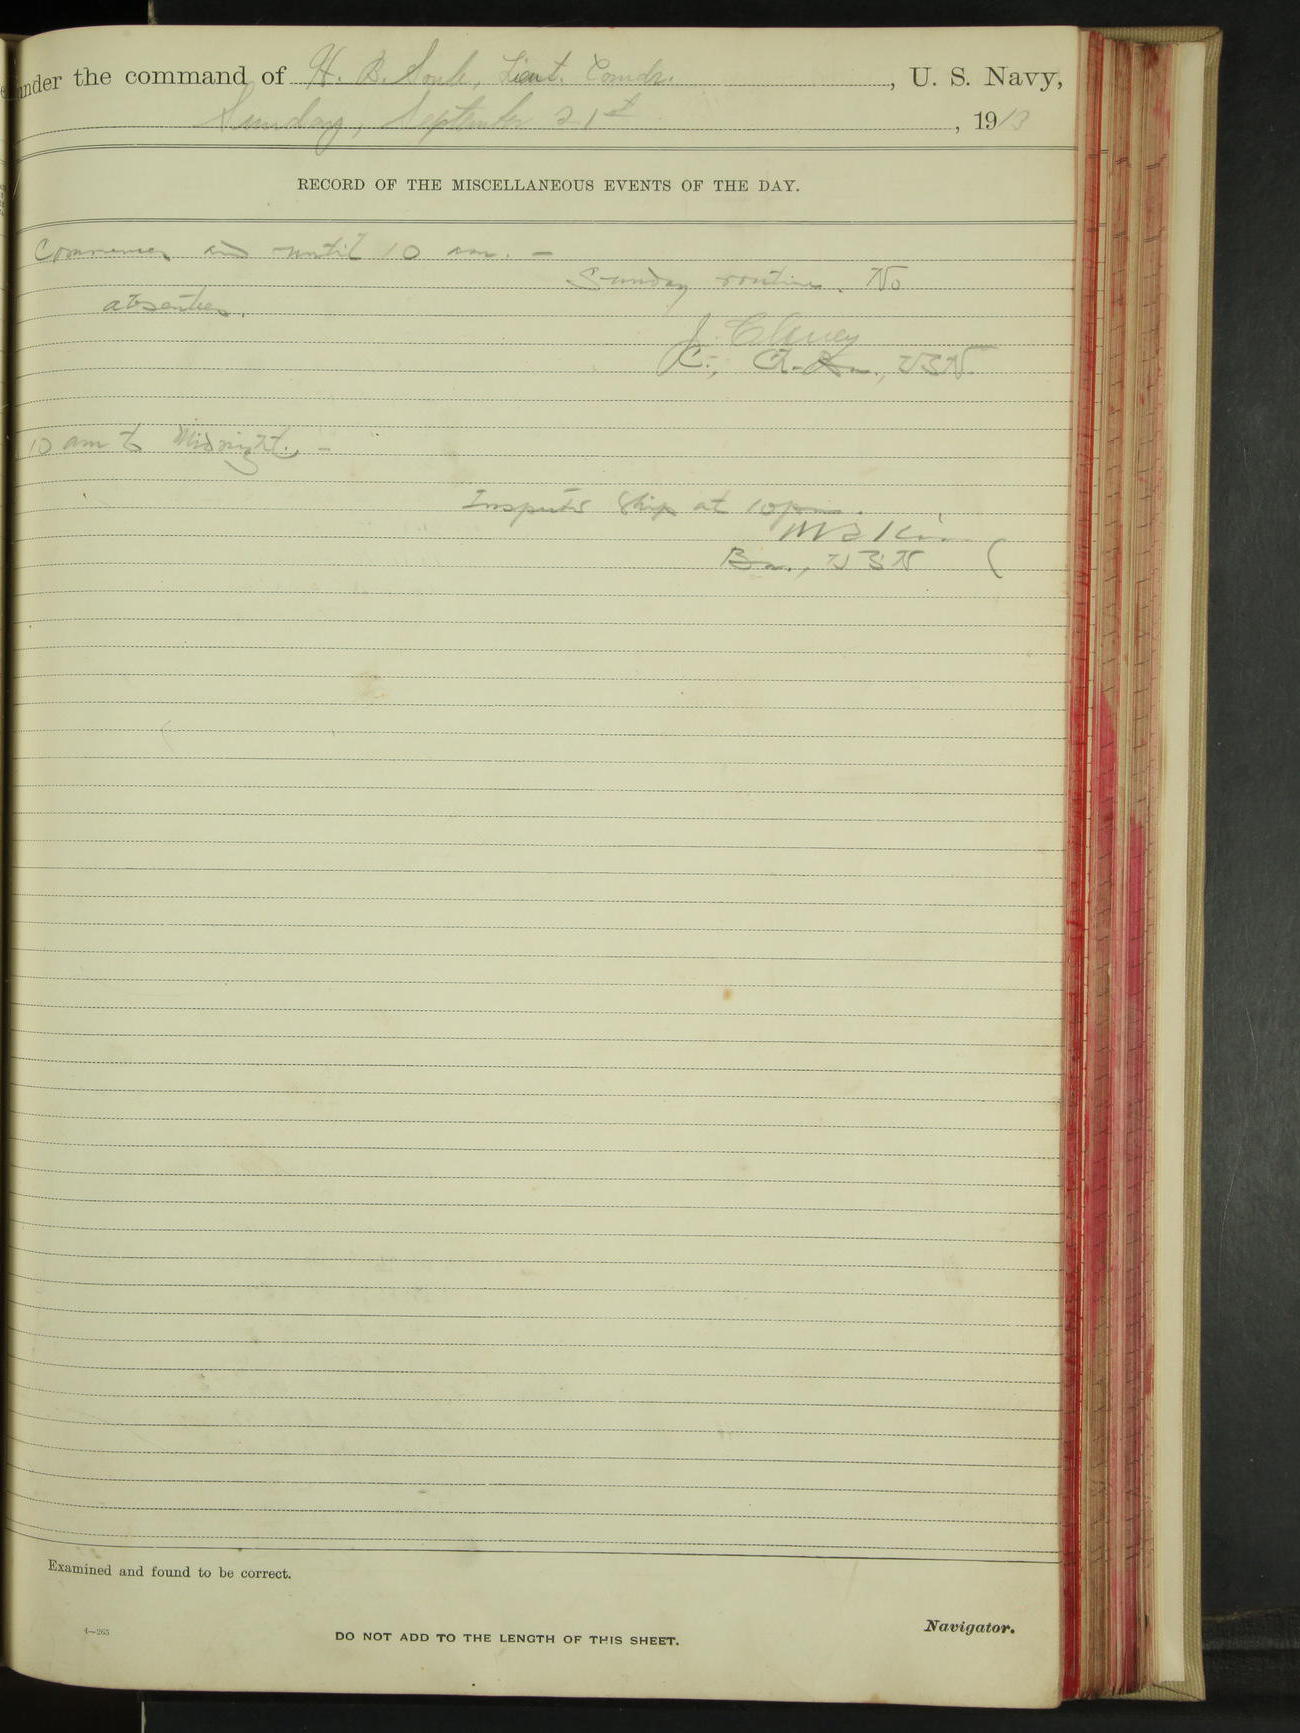 under the command of H. B. Soule, Lieut. Comdr., U. S. Navy,
Sunday, September 21st, 1913
RECORD OF THE MISCELLANEOUS EVENTS OF THE DAY.
Commences and until 10 am. —
Sunday routine. No
absentees.
USN.
10 am to Midnight. —
Inspected Ship at 10 pm.
Bn., USN
Examined and found to be correct.
Navigator.
4—265
DO NOT ADD TO THE LENGTH OF THIS SHEET.